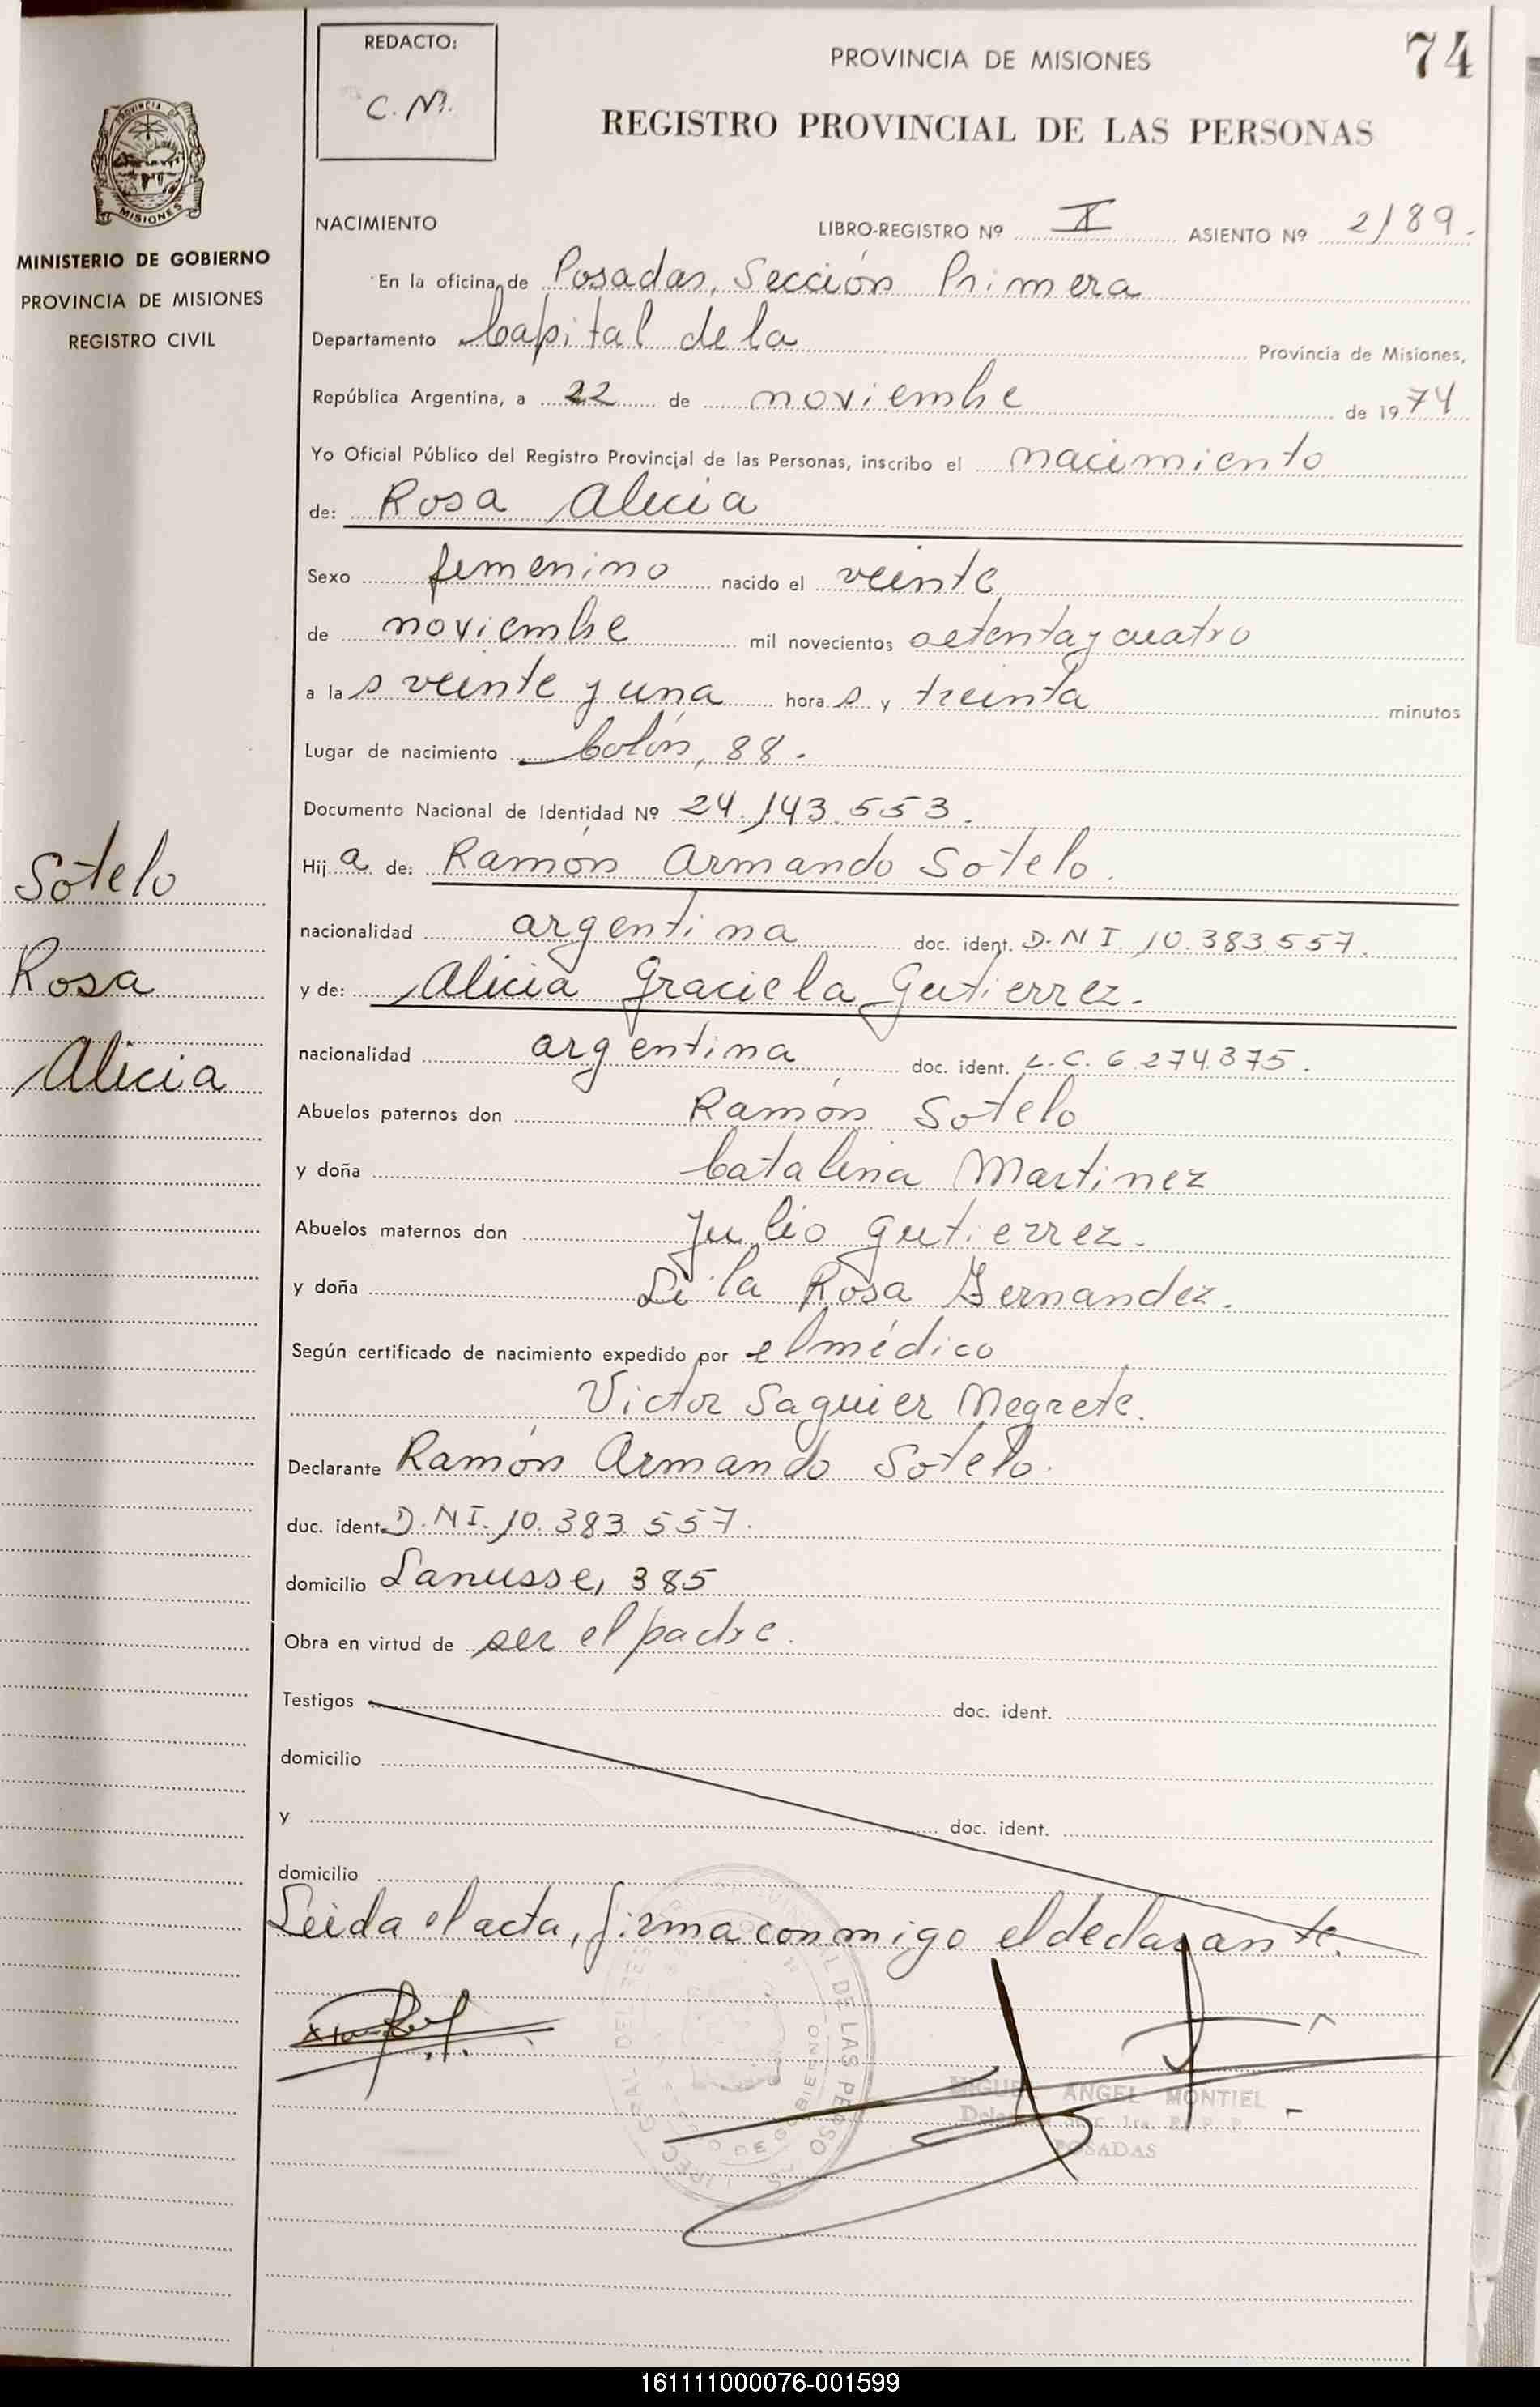 REDACTO:
C. M.
PROVINCIA DE MISIONES
74
REGISTRO PROVINCIAL DE LAS PERSONAS
MISIONES
MINISTERIO DE GOBIERNO
PROVINCIA DE MISIONES
REGISTRO CIVIL
NACIMIENTO LIBRO-REGISTRO Nº X ASIENTO Nº 2189.
En la oficina de Posadas, Sección Primera
Departamento Capital de la Provincia de Misiones,
República Argentina, a 22 de noviembre de 1974
Yo Oficial Público del Registro Provincial de las Personas, inscribo el nacimiento
de: Rosa Alicia
Sexo femenino nacido el veinte
de noviembre mil novecientos setenta y cuatro
a la s veinte y una hora s y treinta minutos
Lugar de nacimiento Colón, 88.
Documento Nacional de Identidad Nº 24.143.553.
Hij a de: Ramón Armando Sotelo.
nacionalidad argentina doc. ident. D.N I. 10.383.557.
y de: Alicia Graciela Gutierrez.
nacionalidad argentina doc. ident. L.C. 6.274.375.
Abuelos paternos don Ramón Sotelo
y doña Catalina Martinez
Abuelos maternos don Julio Gutierrez.
y doña Lila Rosa Fernandez.
Según certificado de nacimiento expedido por el médico
Victor Saguier Negrete.
Declarante Ramón Armando Sotelo.
doc. ident. D.N I. 10.383.557.
domicilio Lanusse, 385
Obra en virtud de ser el padre.
Testigos doc. ident.
domicilio
y doc. ident.
domicilio
Leida el acta, firma conmigo el declarante.
MIGUEL ANGEL MONTIEL
POSADAS
Sotelo
Rosa
Alicia
161111000076-001599